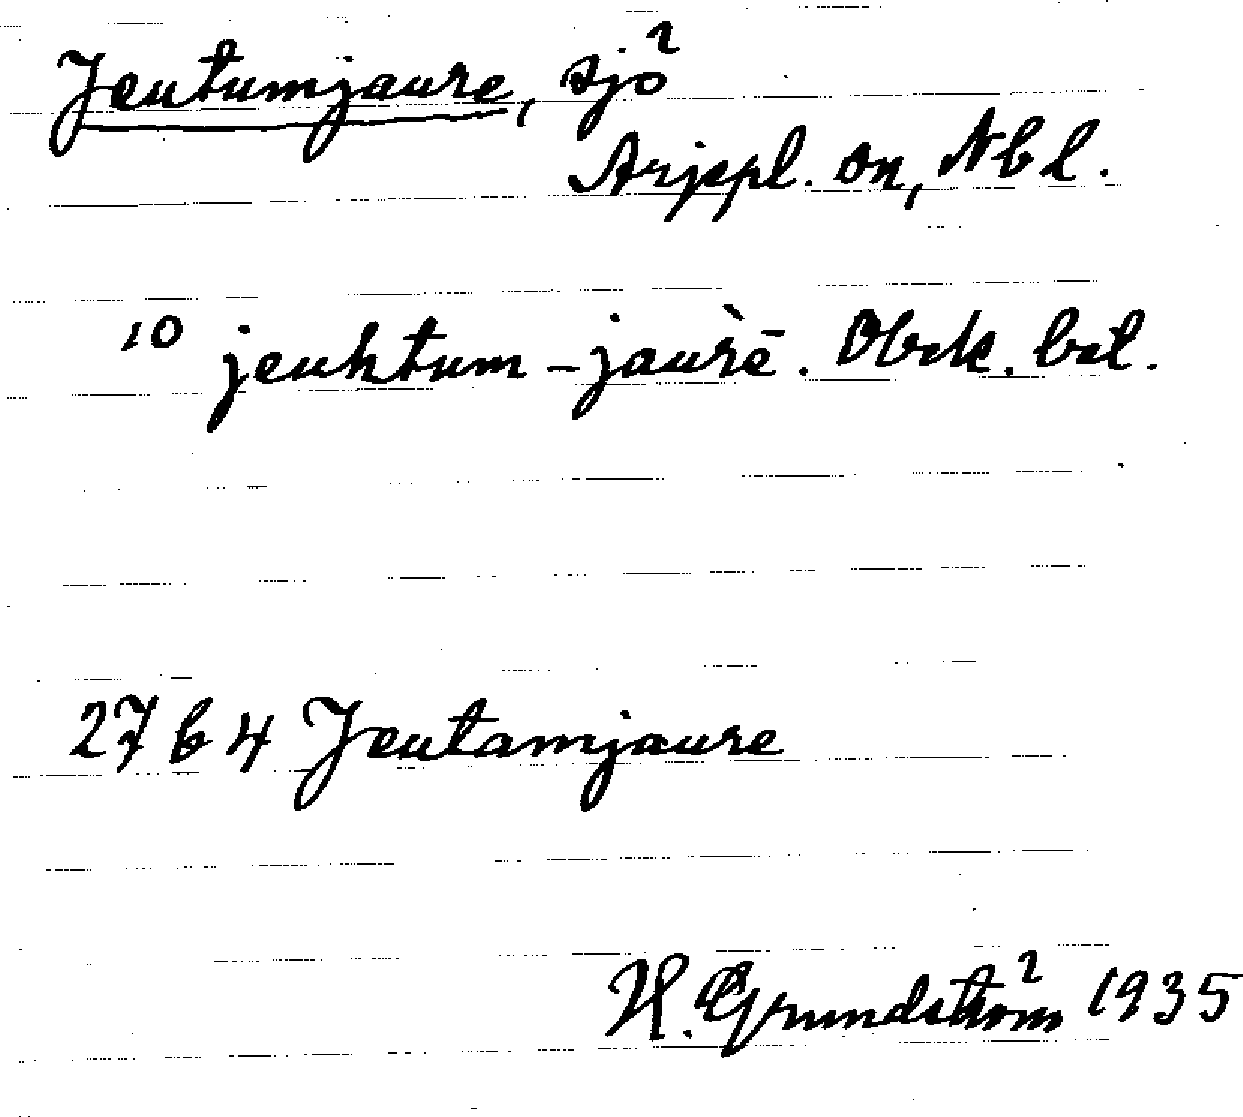 Jeutumjaure, sjö
Arjepl. sn, Nbl.
10 jeuhtum-jaùrē. Obek. bet.
27 b 4 Jeutamjaure
H. Grundström 1935